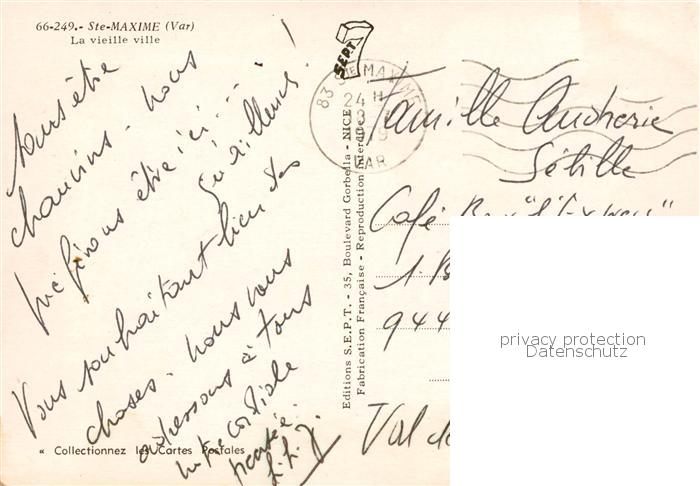 66-249.- Ste-MAXIME (Var)
La vieille ville
Sans être
chauvins - nous
préférons être ici...
qu'ailleurs!
Vous souhaitant bien des
choses - nous vous
adressons à tous
notre cordiale
pensée.
« Collectionnez les Cartes Postales
Editions S.E.P.T. - 35, Boulevard Gorbella - NICE
Fabrication Française - Reproduction Interdite
SEPT
83 STE MAXIME
24 H
13
VAR
Famille
Café Bar
1.
944
Val de
privacy protection
Datenschutz